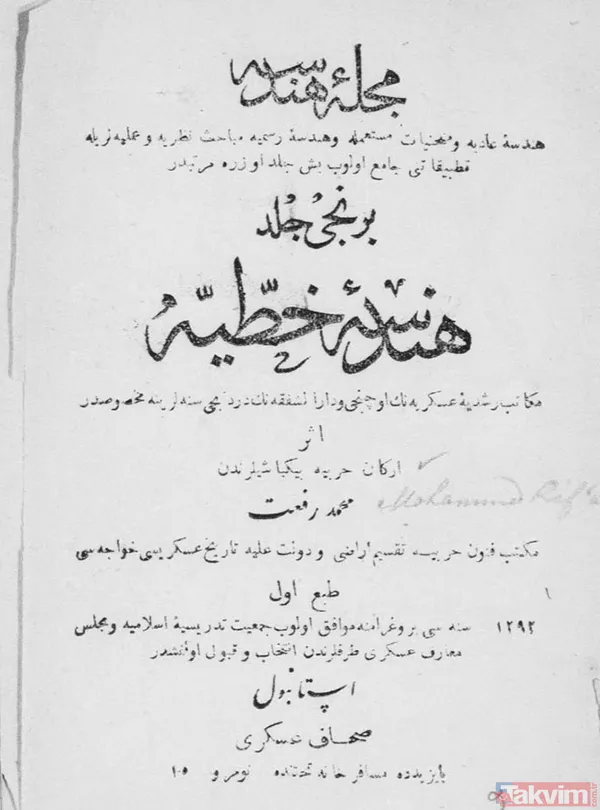 مجلهٔ هندسه
هندسهٔ عادیه و منحنیات مستعمله و هندسهٔ رسمیه مباحث نظریه و عملیه لریله
تطبیقاتی جامع اولوب بش جلد اوزره مرتبدر
برنجی جلد
هندسهٔ خطّیه
مکاتب رشدیهٔ عسکریه نك اوچنجی و دارالشفقه نك دردنجی سنه لرینه مخصوصدر
اثر
ارکان حربیه بیکباشیلرندن
محمد رفعت
Mohammed Rif'at
مکتب فنون حربیه تقسیم اراضی و دولت علیه تاریخ عسکریسی خواجه سی
طبع اول
۱۲۹۲ سنه سی پروغرامنه موافق اولوب جمعیت تدریسیهٔ اسلامیه و مجلس
معارف عسکری طرفلرندن انتخاب و قبول اولنمشدر
استانبول
صحاف عسکری
بایزیدده مسافر خانه تحتنده نومرو ۱۰۵
Takvim